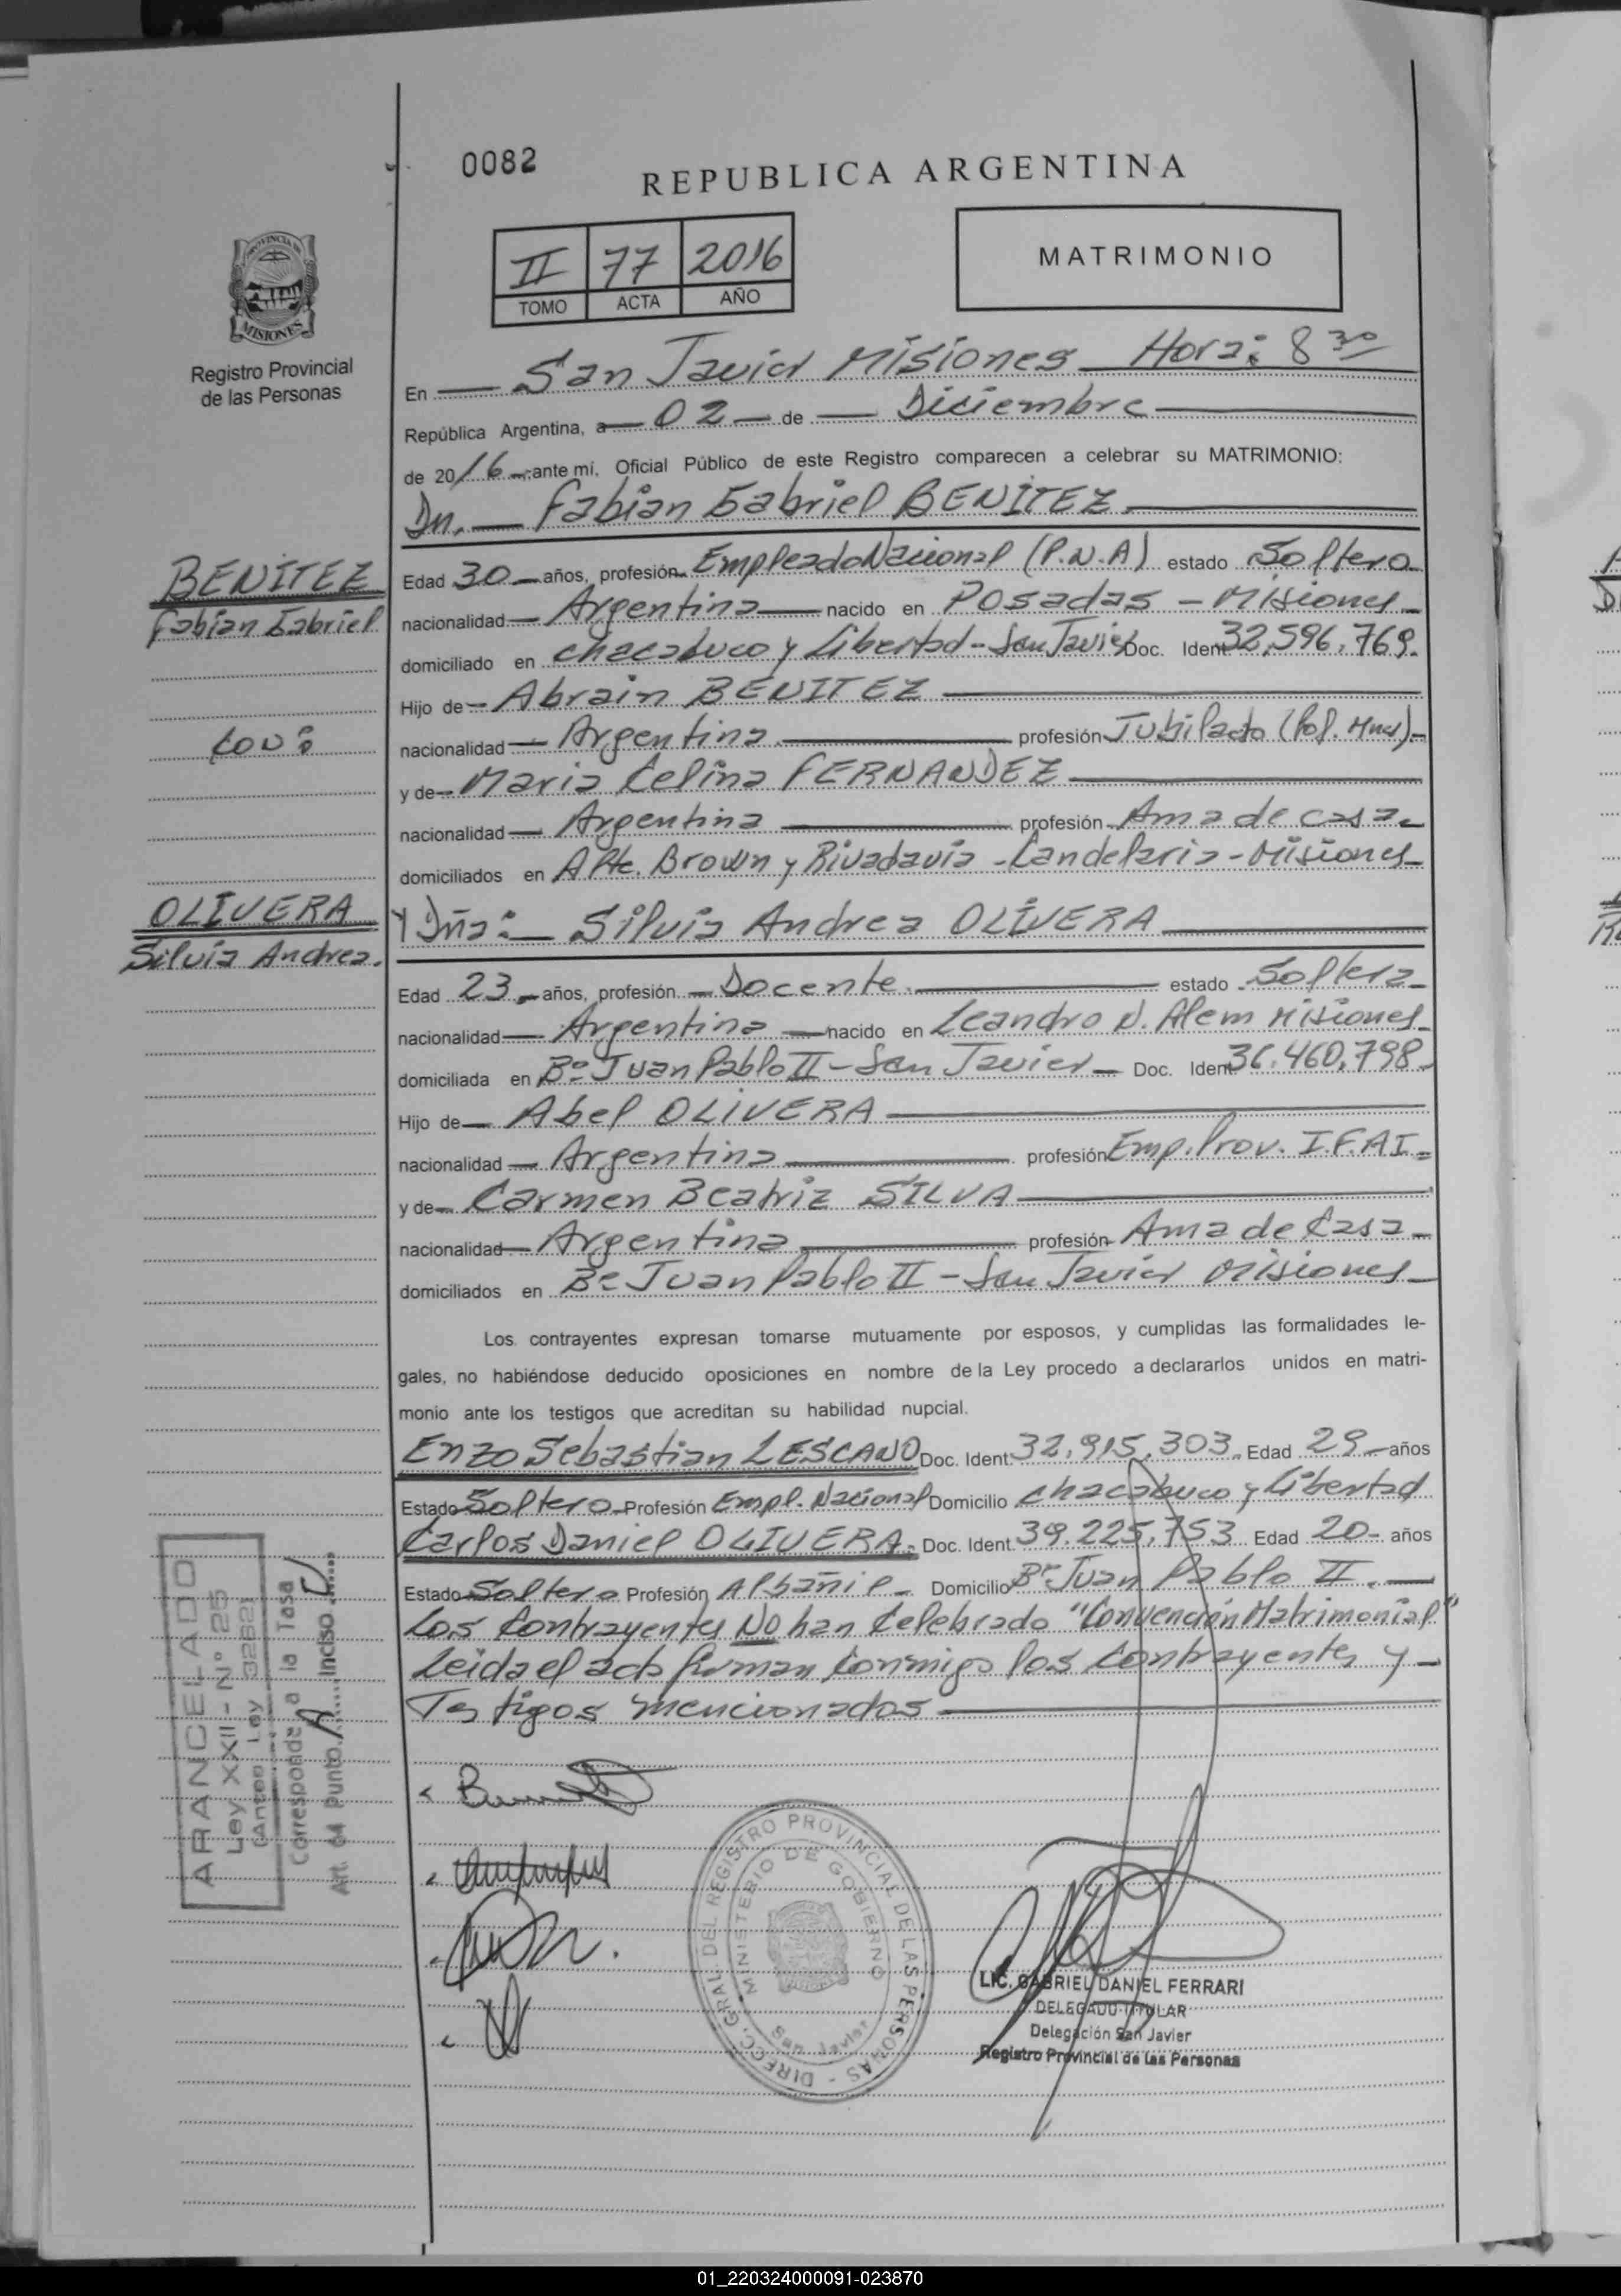 0082
REPUBLICA ARGENTINA
II 77 2016
TOMO ACTA AÑO
MATRIMONIO
PROVINCIA DE
MISIONES
Registro Provincial
de las Personas
En San Javier Misiones Hora: 8 30
República Argentina, a 02 de Diciembre
de 2016 ante mí, Oficial Público de este Registro comparecen a celebrar su MATRIMONIO:
Dn. Fabian Gabriel BENITEZ
BENITEZ
Fabian Gabriel
Edad 30 años, profesión Empleado Nacional (P.N.A) estado Soltero
nacionalidad Argentina nacido en Posadas - Misiones
domiciliado en Chacabuco y Libertad - San Javier Doc. Ident 32.596.769.
Hijo de Abrain BENITEZ
con:
nacionalidad Argentina profesión Jubilado (Pol. Mnes)
y de Maria Celina FERNANDEZ
nacionalidad Argentina profesión Ama de casa
domiciliados en Alte. Brown y Rivadavia - Candelaria - Misiones
OLIVERA
Silvia Andrea.
Y Dña: Silvia Andrea OLIVERA
Edad 23 años, profesión Docente estado Soltera
nacionalidad Argentina nacido en Leandro N. Alem Misiones
domiciliada en Bº Juan Pablo II - San Javier Doc. Ident 36.460.798
Hijo de Abel OLIVERA
nacionalidad Argentina profesión Emp. Prov. I.F.A.I.
y de Carmen Beatriz SILVA
nacionalidad Argentina profesión Ama de Casa
domiciliados en Bº Juan Pablo II - San Javier Misiones
Los contrayentes expresan tomarse mutuamente por esposos, y cumplidas las formalidades le-
gales, no habiéndose deducido oposiciones en nombre de la Ley procedo a declararlos unidos en matri-
monio ante los testigos que acreditan su habilidad nupcial.
Enzo Sebastian LESCANO Doc. Ident. 32.915.303 Edad 29 años
Estado Soltero Profesión Empl. Nacional Domicilio Chacabuco y Libertad
Carlos Daniel OLIVERA Doc. Ident. 39.225.753 Edad 20 años
Estado Soltero Profesión Albañil Domicilio Bº Juan Pablo II.
Los Contrayentes NO han Celebrado "Convención Matrimonial"
Leida el acta firman Conmigo los Contrayentes y
Testigos mencionados
ARANCELADO
Ley XXII - Nº 25
(Antes Ley 3262)
Corresponde a la Tasa
Art. 64 punto A Inciso
DIRECC. GRAL. DEL REGISTRO PROVINCIAL DE LAS PERSONAS
MINISTERIO DE GOBIERNO
San Javier
LIC. GABRIEL DANIEL FERRARI
DELEGADO TITULAR
Delegación San Javier
Registro Provincial de las Personas
01_220324000091-023870